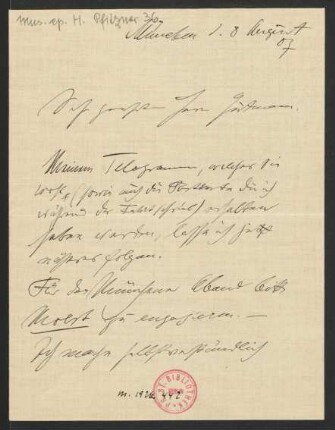 Mus. ep. H. Pfitzner 36
München d. 8 August
07
Sehr geehrter Herr Hartmann.
Meinem Telegramm, welches Sie
wohl (sowie auch die Postkarte die ich
während der Fahrt schrieb) erhalten
haben werden, lasse ich jetzt
näheres folgen.
Für den Münchener Abend bitte
zu engagieren. —
Ich mache selbstverständlich
BIBLIOTHEK
m. 1926. 442